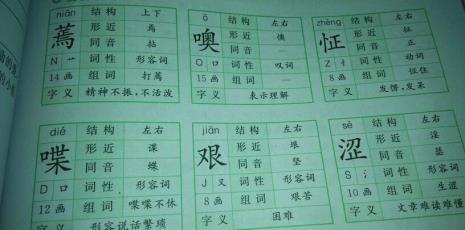 niān 结构 上下
蔫 形近 焉
同音 拈
N 艹 词性 形容词
14画 组词 打蔫
字义 精神不振,不活泼
ō 结构 左右
噢 形近 懊
同音 —
O 口 词性 叹词
15画 组词 —
字义 表示理解
zhèng 结构 左右
怔 形近 征
同音 正
Z 忄 词性 动词
8画 组词 怔住
字义 发愣,发呆
dié 结构 左右
喋 形近 谍
同音 蝶
D 口 词性 形容词
12画 组词 喋喋不休
字义 形容说话繁琐
jiān 结构 左右
艰 形近 垠
同音 坚
J 又 词性 形容词
8画 组词 艰苦
字义 困难
sè 结构 左右
涩 形近
同音 瑟
S 氵 词性 形容词
10画 组词 生涩
字义 文章难读难懂